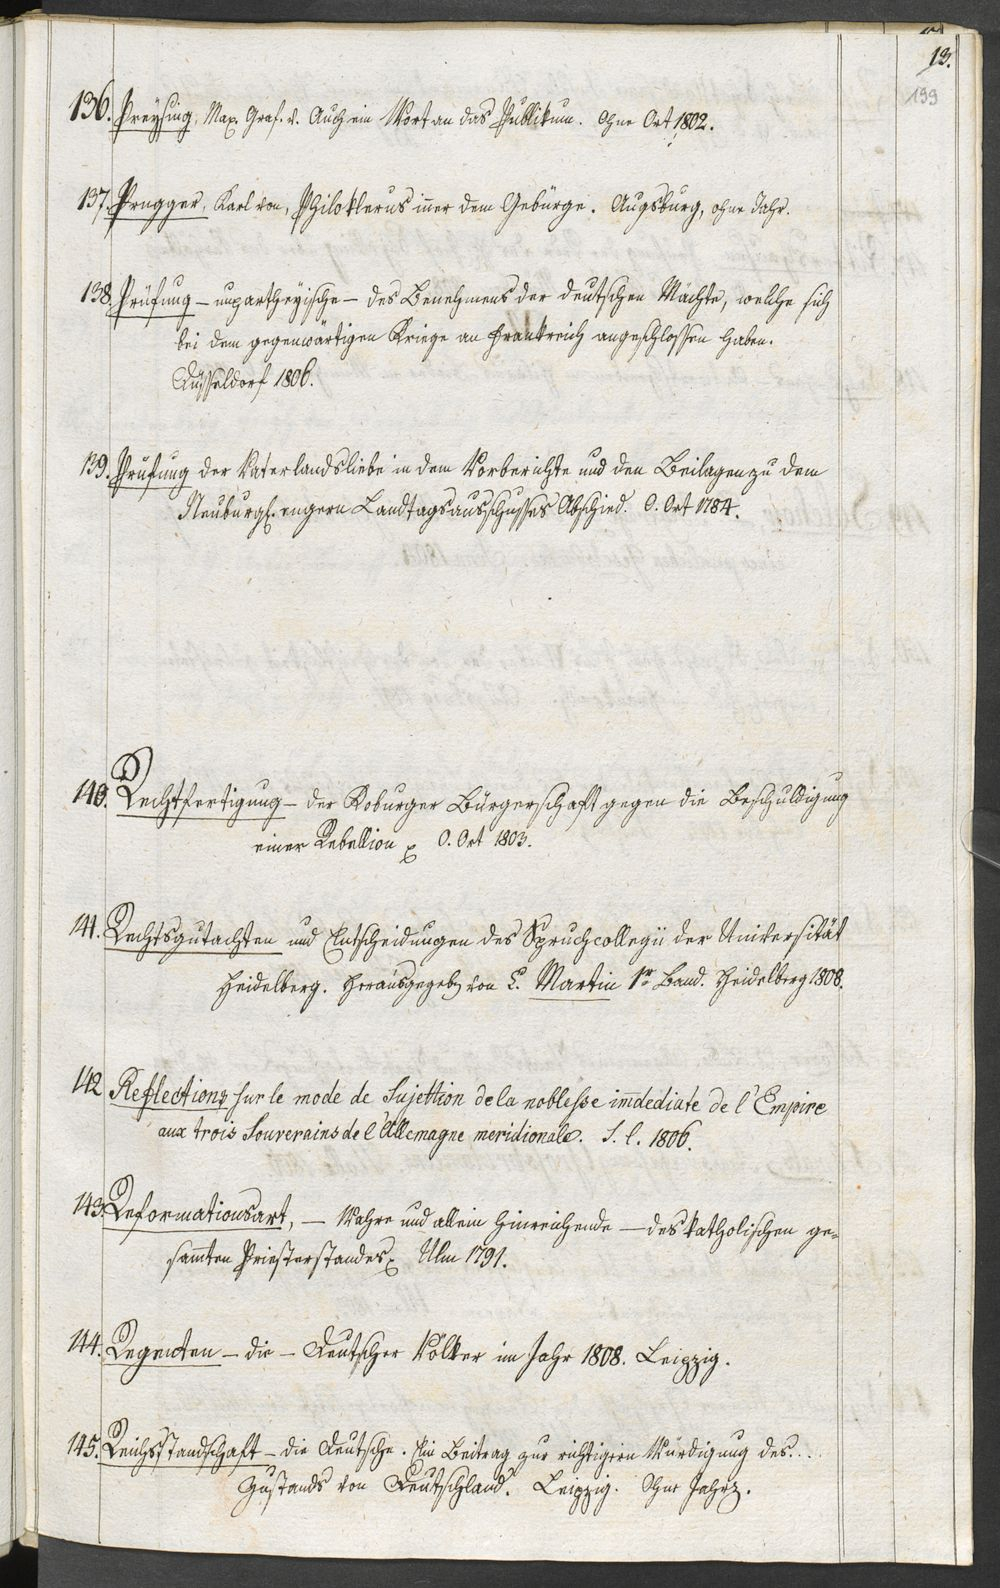 13.
199
136. Preysing, Max. Graf. v. Auch ein Wort an das Publikum. Ohne Ort 1802.
137. Prugger, Karl von, Philoklerus iñer dem Gebürge. Augsburg, ohne Jahr.
138. Prüfung – unpartheyische – des Benehmens der deutschen Mächte, welche sich
bei dem gegenwärtigen Kriege an Frankreich angeschlossen haben.
Düsseldorf 1806.
139. Prüfung der Vaterlandsliebe in dem Vorberichte und den Beilagen zu dem
Neuburgs. engern Landtagsausschusses Abschied. O. Ort 1784.
140. Rechtfertigung – der Koburger Bürgerschaft gegen die Beschuldigung
einer Rebellion O. Ort 1803.
141. Rechtsgutachten und Entscheidungen des Spruchcollegii der Universität
Heidelberg. Herausgegeben von C. Martin 1r Band. Heidelberg 1808.
142 Reflections sur le mode de Sujettion de la noblesse im̄dediate de l'Empire
aux trois Souverains de l'Allemagne meridionale. S. l. 1806.
143. Reformationsart, – Wahre und allein hinreichende – des katholischen ge-
sam̄ten Priesterstandes Ulm 1791.
144. Regenten – die – Deutscher Völker im Jahr 1808. Leipzig.
145. Reichsstandschaft – die Deutsche. Ein Beitrag zur richtigern Würdigung des...
Zustands von Deutschland. Leipzig. Ohne Jahrz.